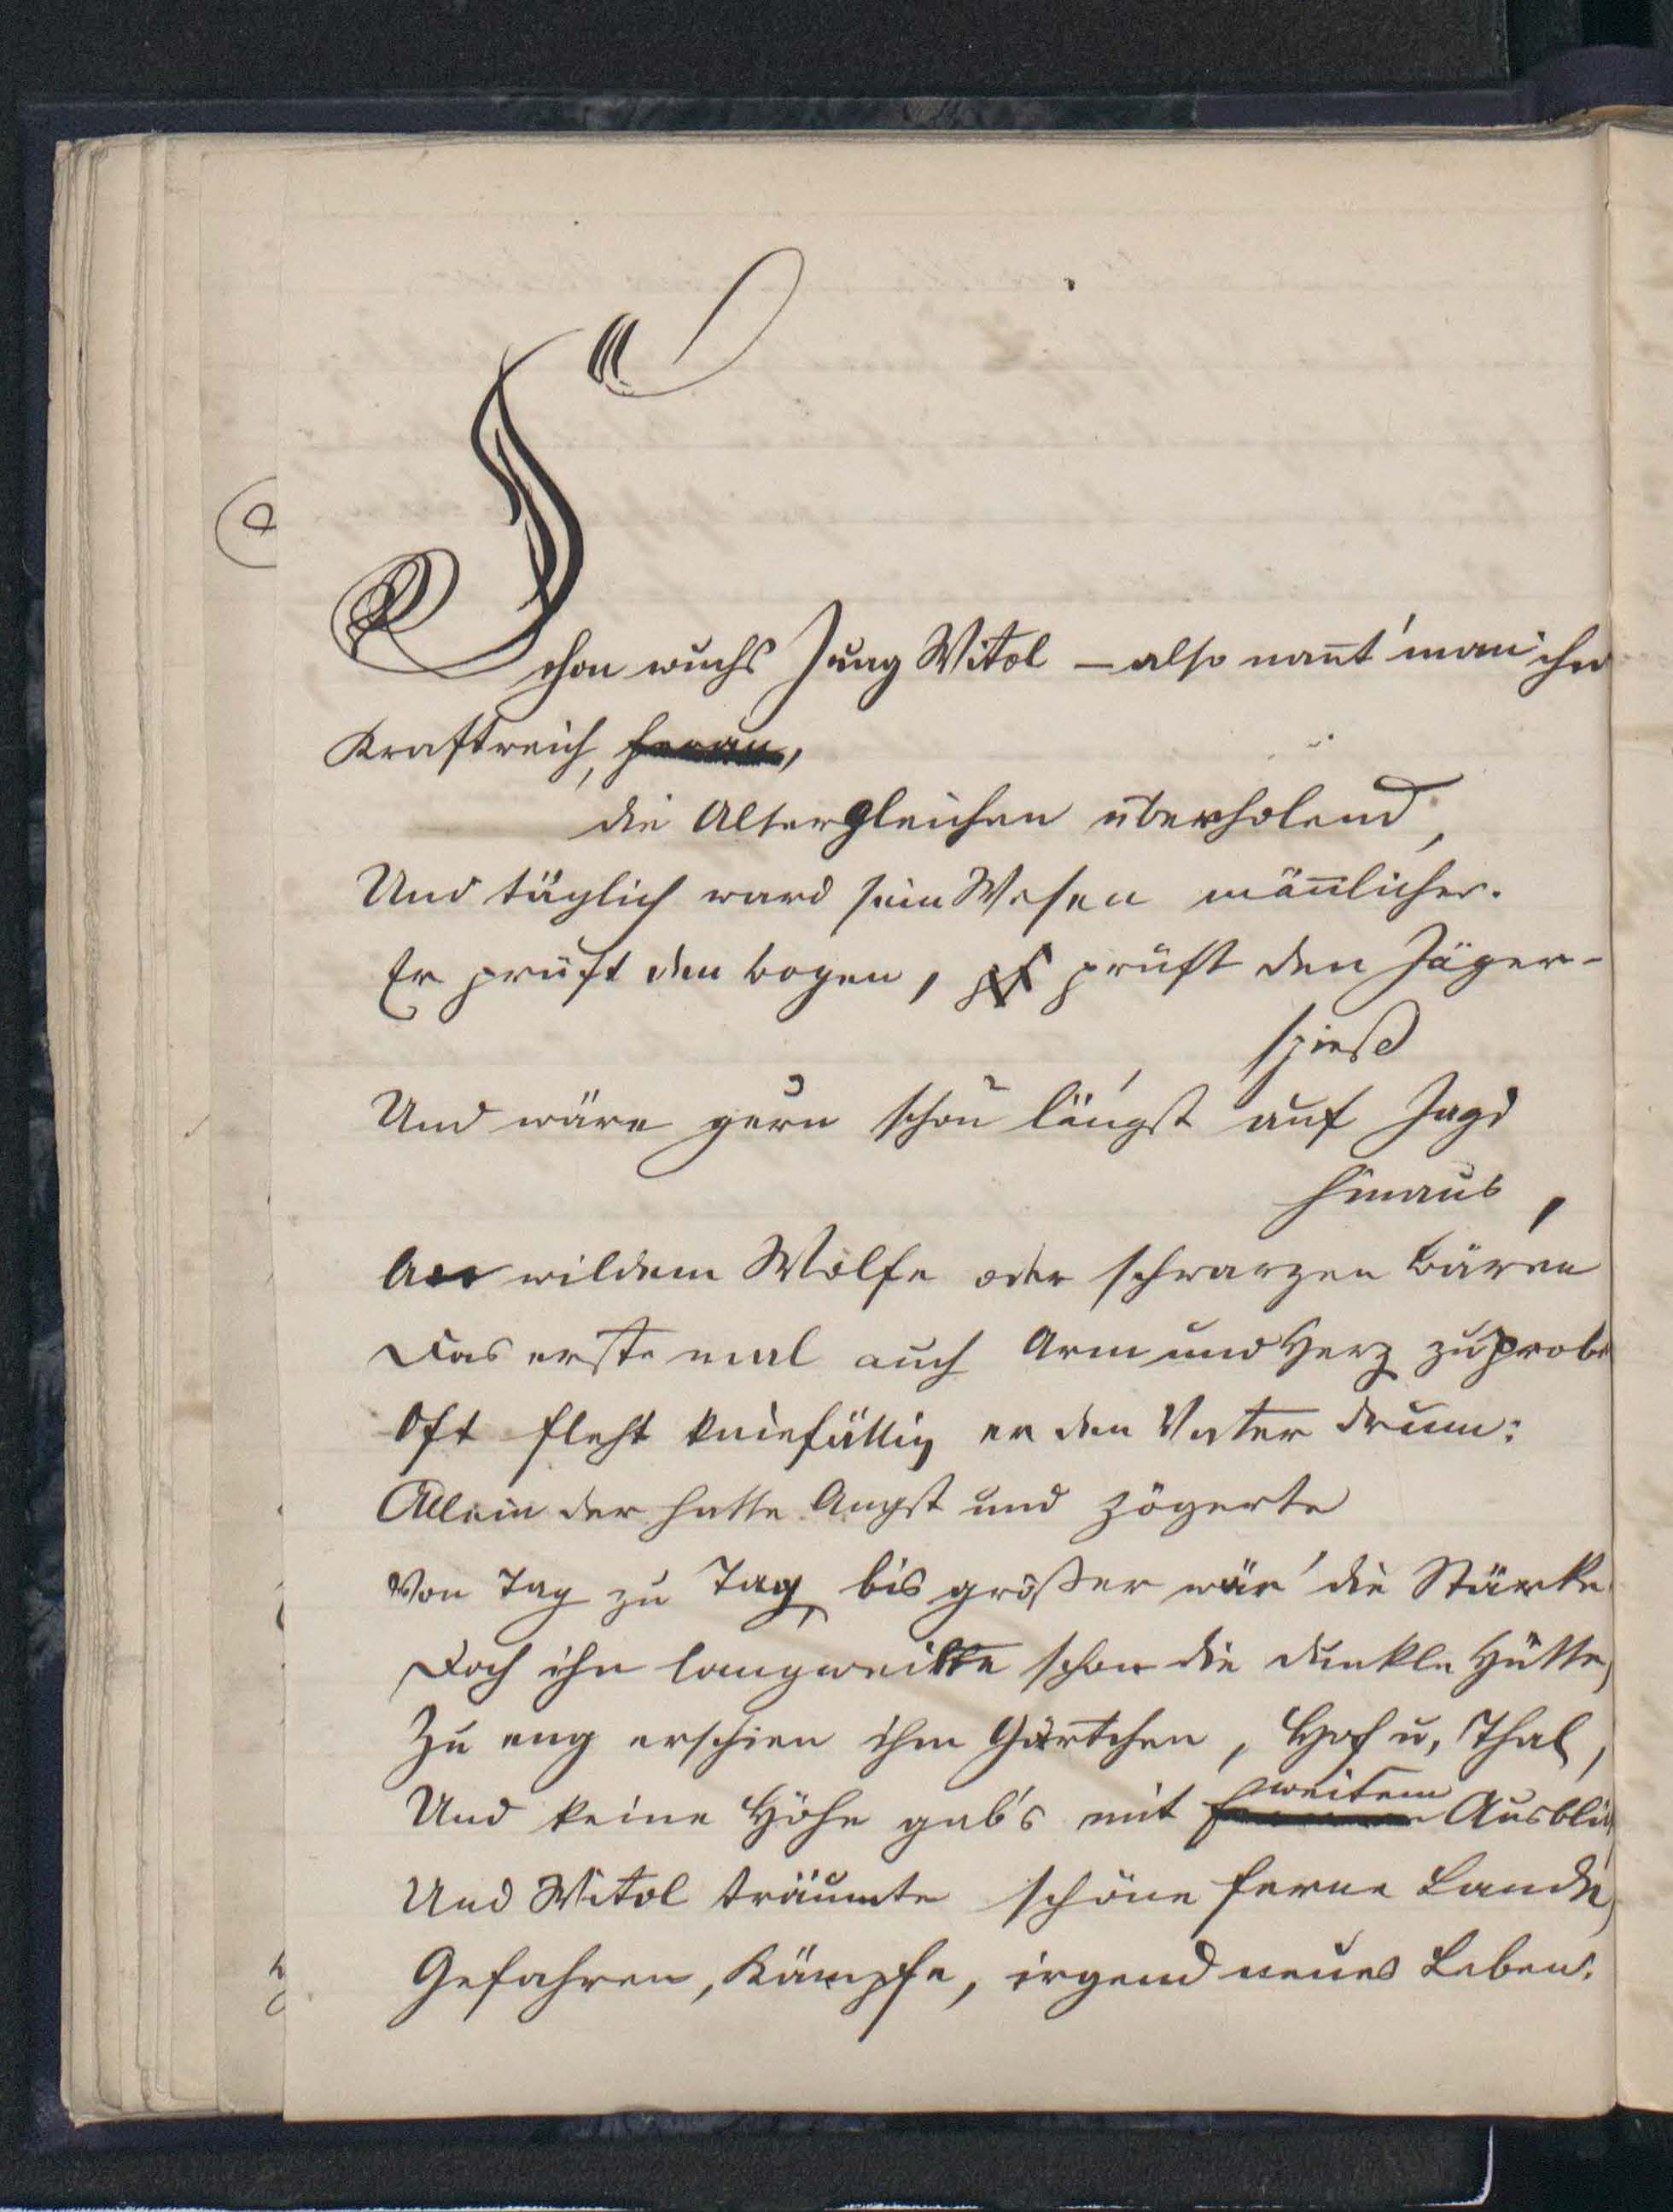 Schon wuchs Jung Witol – also nan̄t' man ihn
Kraftreich, heran,
die Altergleichen überholend,
Und täglich ward sein Wesen män̄licher.
Er prüft den Bogen, prüft den Jäger-
spieß
Und wäre gern schon längst auf Jagd
hinaus,
An wildem Wolfe oder schwarzen Bären
Das erste mal auch Arm und Herz zu probe
Oft fleht kniefällig er den Vater drum:
Allein der hatte Angst und zögerte
Von Tag zu Tag, bis größer wär' die Stärke
Doch ihn langweilte schon die dunkle Hütte,
Zu eng erschien ihm Gärtchen, Hof u, Thal,
weitem
Und keine Höhe gab's mit Ausbli
Und Witol träumte schöne ferne Lande,
Gefahren, Kämpfe, irgend neues Leben.